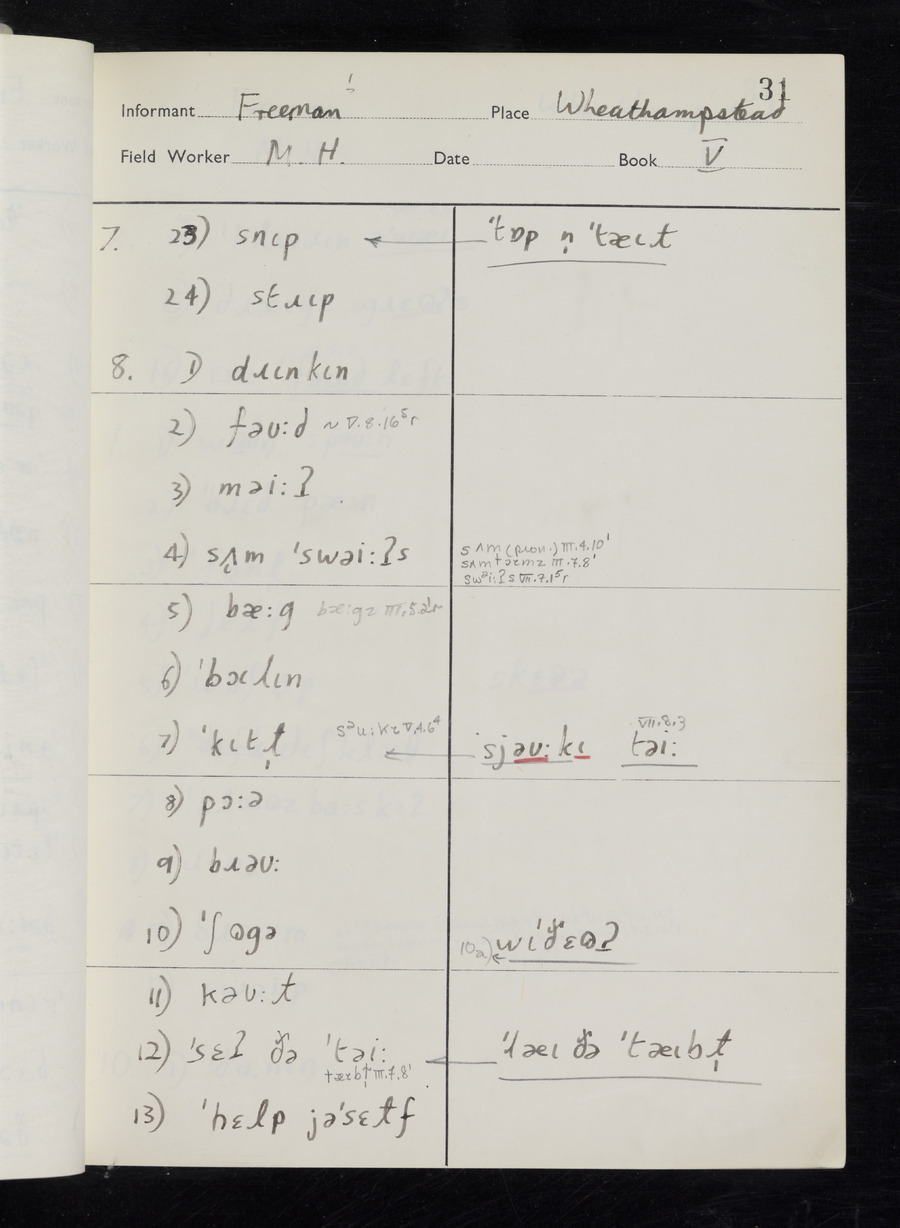 31
Informant Freeman Place Wheathampstead
Field Worker M. H. Date Book V
7. 23) snɪp ← ˈtɒp n̩ ˈtæɪɫ
24) stɹɪp
8. 1) dɹɪnkɪn
2) fəʊ:d ~ V.8.16⁵r
3) məi:ʔ
4) sʌm ˈswəi:ʔs sʌm (pron.) III.4.10ˈ
sʌmtəɪmz III.7.8ˈ
swᵊi:ʔs VII.7.1⁵r
5) bæ:g bæ:gz
6) ˈbɔɪlɪn
7) ˈkɪtɫ̩ sᵊu:kɪ V.4.6⁴ ← ˈsjəʊ:kɪ təi: VII.8.3
8) pɔ:ə
9) bɹəʊ:
10) ˈʃɷgə 10a) ← wɪˈðɛɷʔ
11) kəʊ:ɫ
12) ˈsɛʔ ðə ˈtəi: ← ˈlæɪ ðə ˈtæɪbɫ̩
tæɪbɫ̩ III.7.8ˈ
13) ˈhɛlp jəˈsɛɫf